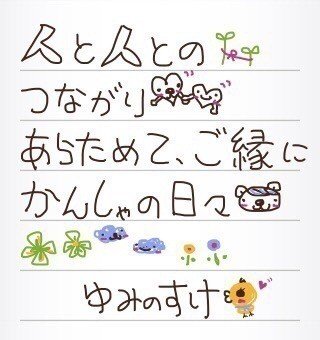 人と人との
つながり
あらためて、ご縁に
かんしゃの日々
ゆみのすけ